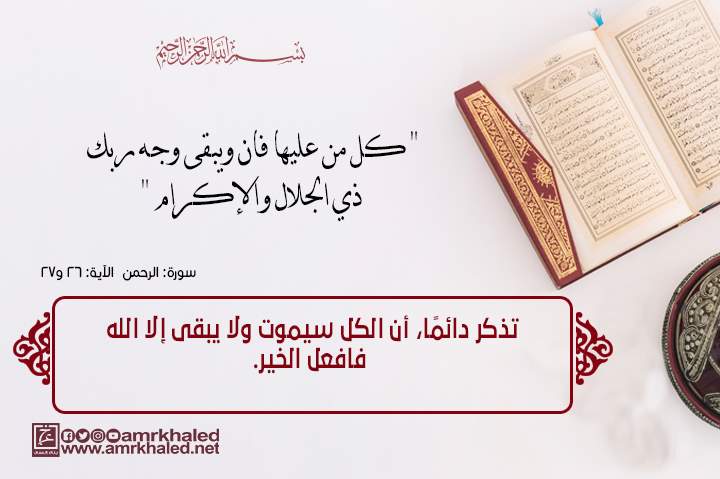 بسم الله الرحمن الرحيم
" كل من عليها فان ويبقى وجه ربك
ذي الجلال والإكرام "
سورة: الرحمن الآية: ٢٦ و٢٧
تذكر دائمًا، أن الكل سيموت ولا يبقى إلا الله
فافعل الخير.
amrkhaled
www.amrkhaled.net